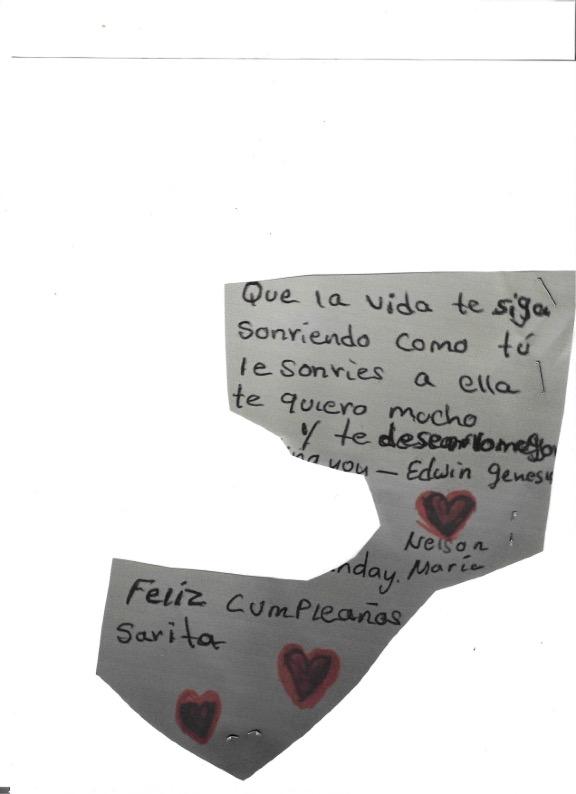 Que la vida te siga
sonriendo como tú
le sonries a ella
te quiero mucho
y te desear lo mejor
you — Edwin genesis
Nelson
nday. María
Feliz Cumpleaños
Sarita